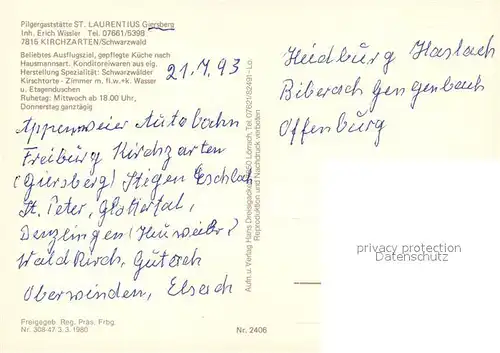 Pilgergaststätte ST. LAURENTIUS Giersberg
Inh. Erich Wissler Tel. 07661/5398
7815 KIRCHZARTEN/Schwarzwald
Beliebtes Ausflugsziel, gepflegte Küche nach
Hausmannsart. Konditoreiwaren aus eig.
Herstellung Spezialität: Schwarzwälder
Kirschtorte - Zimmer m. fl.w.+k. Wasser
u. Etagenduschen
Ruhetag: Mittwoch ab 18.00 Uhr,
Donnerstag ganztägig
Appenweier Autobahn
Freiburg Kirchzarten
(Giersberg) Stigen Eschbach
St. Peter, Glottertal,
Denzlingen (Heuweiler)
Waldkirch, Gutach
Oberwinden, Elzach
Freigegeb. Reg. Präs. Frbg.
Nr. 308-47 3.3.1980
21.4.93
Haslach
Biberach Gengenbach
Offenburg
Aufn. u. Verlag Hans Lörrach, Tel. 07621/82491 - Lo.
Reproduktion und Nachdruck verboten
Nr. 2406
privacy protection
for our customers